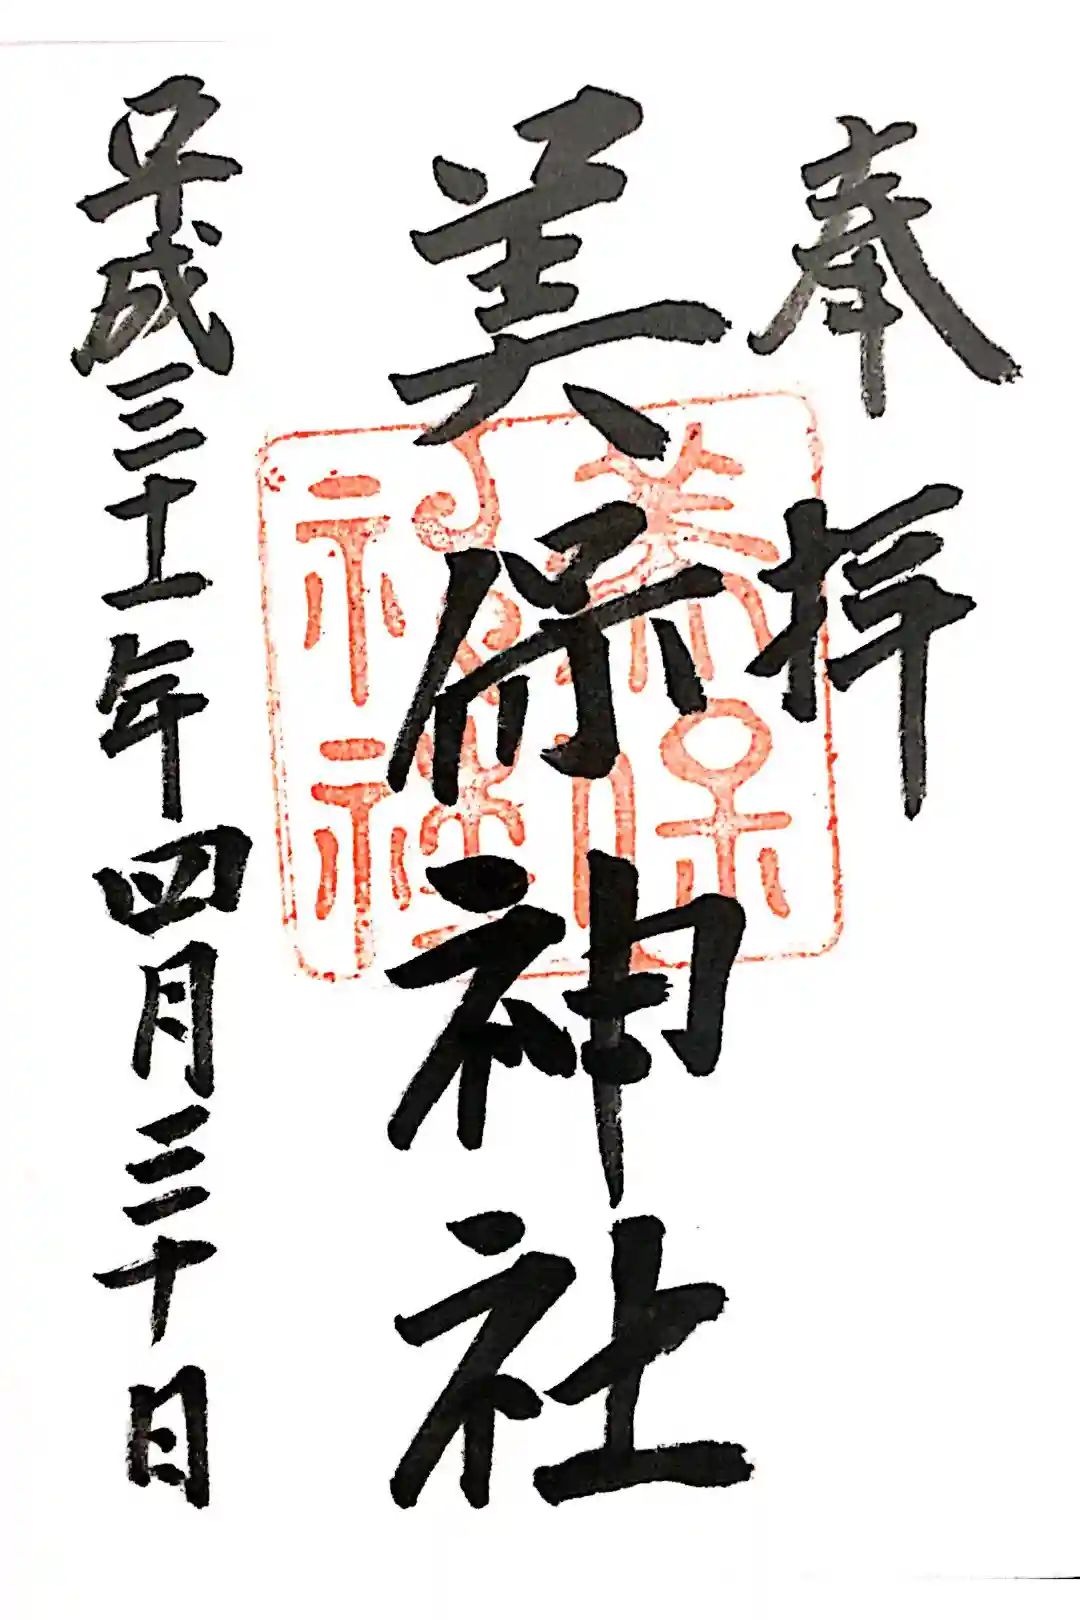 奉拝
美保神社
平成三十一年四月三十日